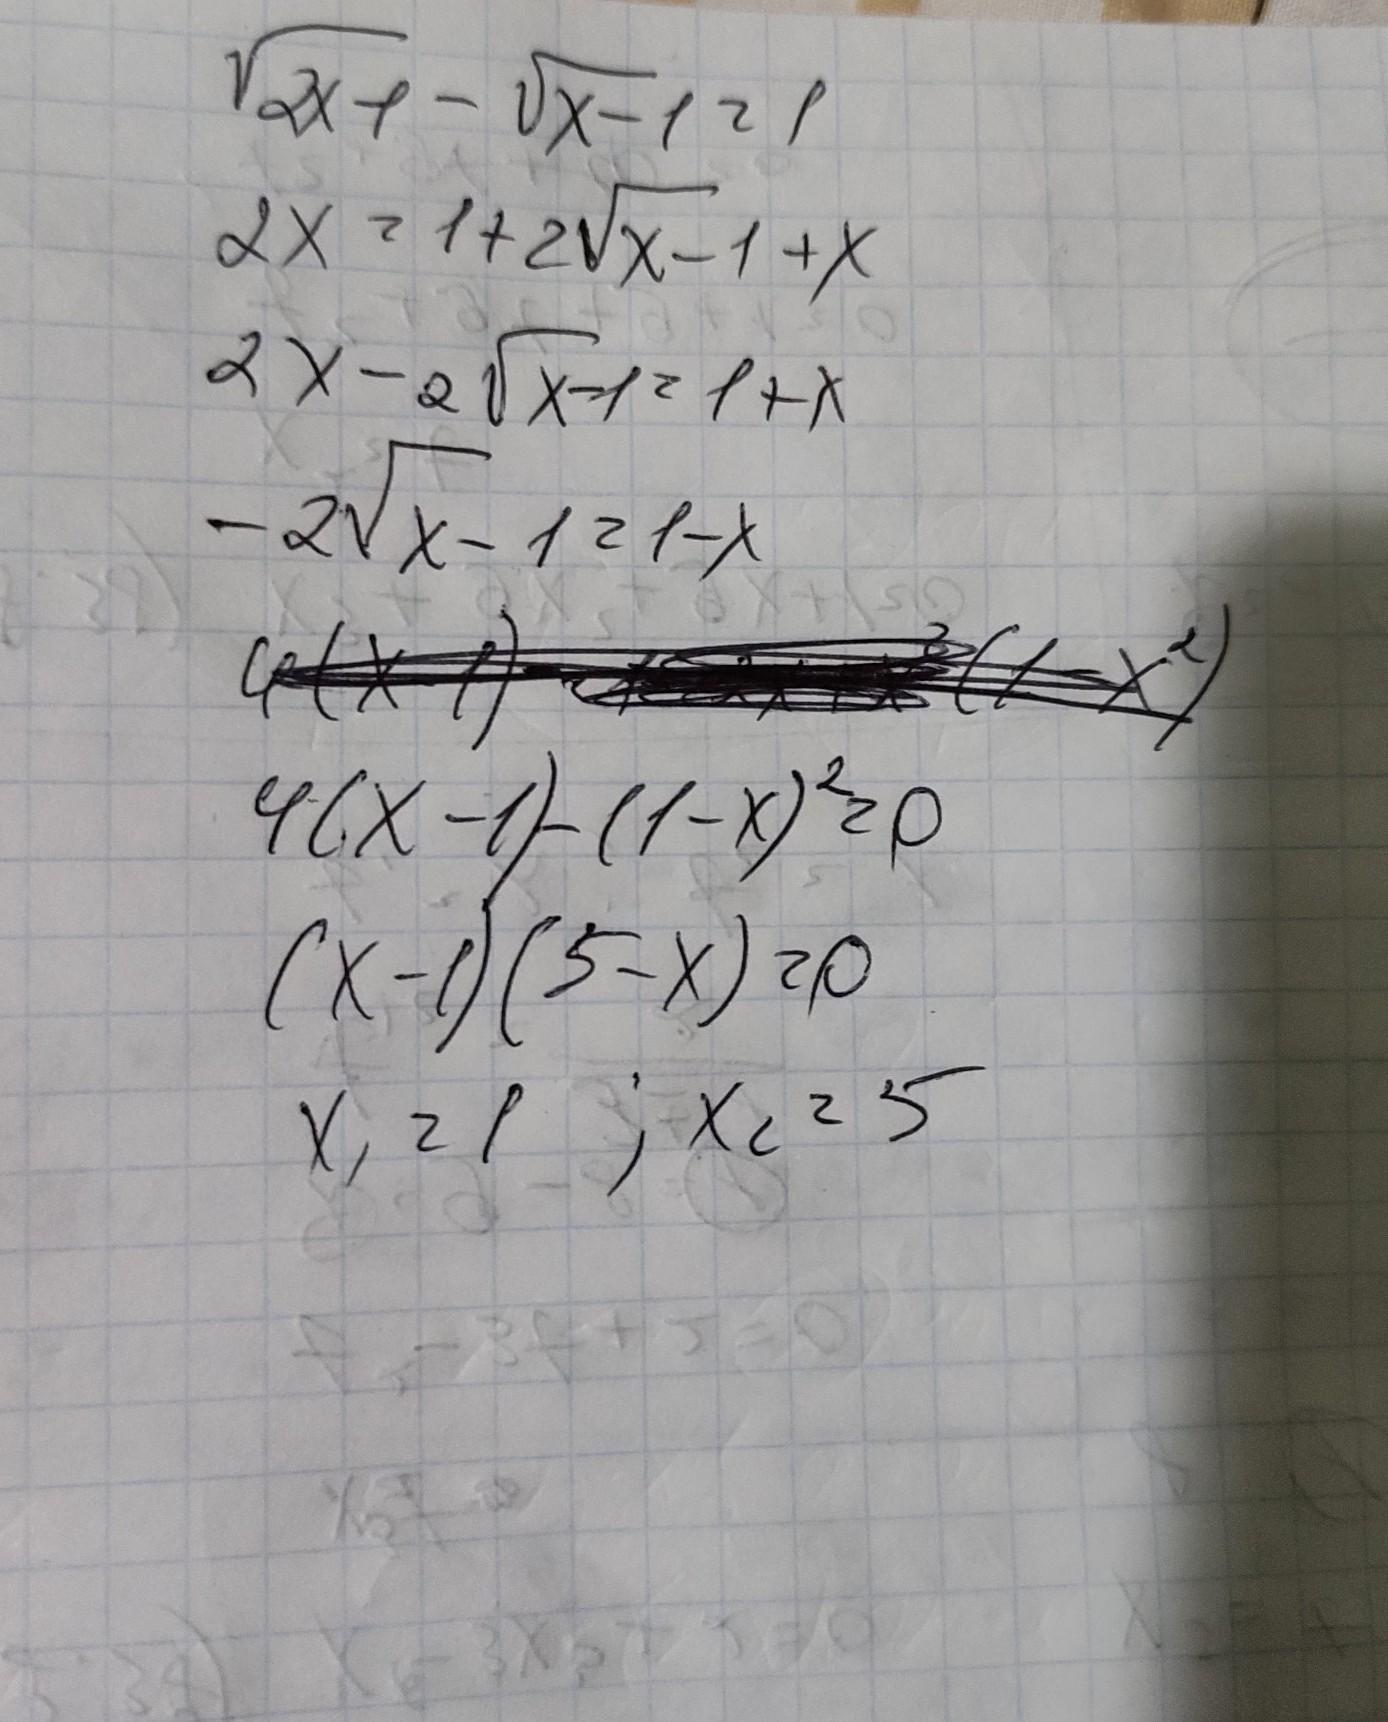 √2x-1 - √x-1 = 1
2x = 1+2√x-1 + x
2x - 2√x-1 = 1+x
-2√x-1 = 1-x
4(x-1) (1-x²)
4(x-1)-(1-x)²=0
(x-1)(5-x)=0
x₁ = 1 ; x₂ = 5